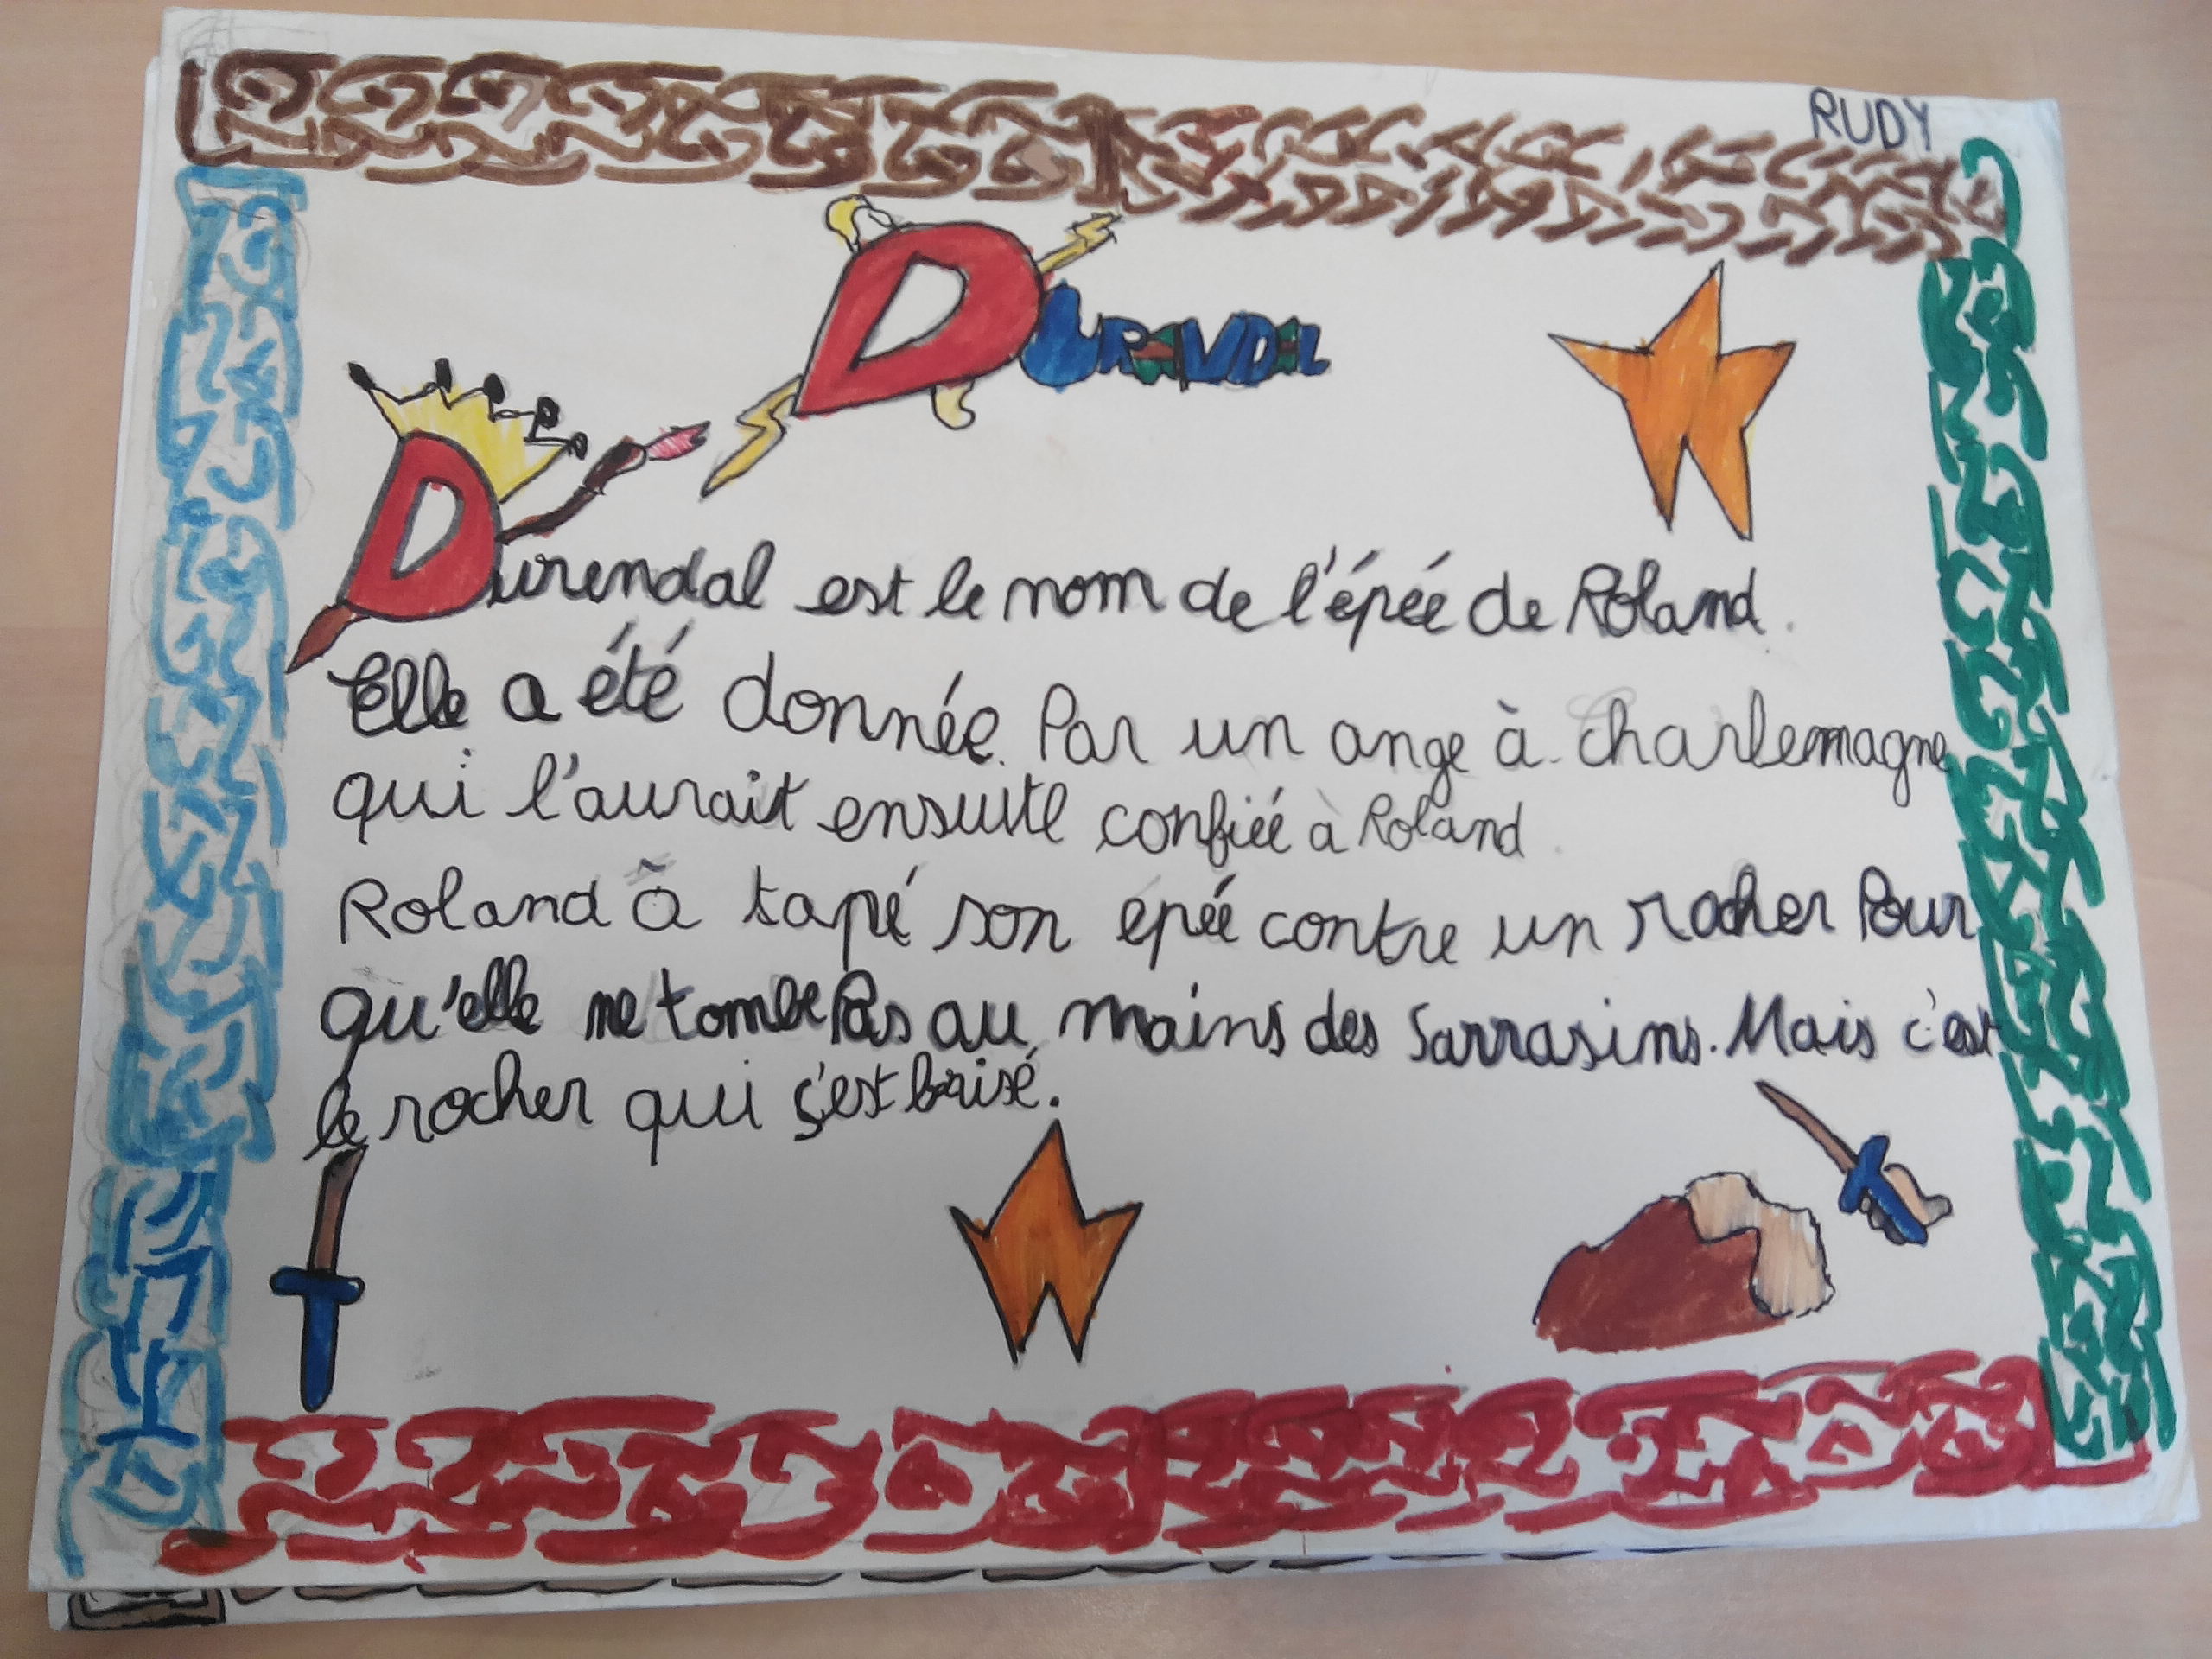 RUDY
DURANDAL
Durendal est le nom de l'épée de Roland.
Elle a été donnée. Par un ange à Charlemagne
qui l'aurait ensuite confiée à Roland.
Roland à tapé son épée contre un rocher Pour
qu'elle ne tombe Pas au mains des Sarrasins. Mais c'est
le rocher qui s'est brisé.